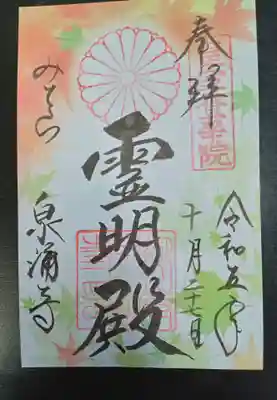 奉拝
令和五年
十月二十七日
霊明殿
みてら
泉涌寺